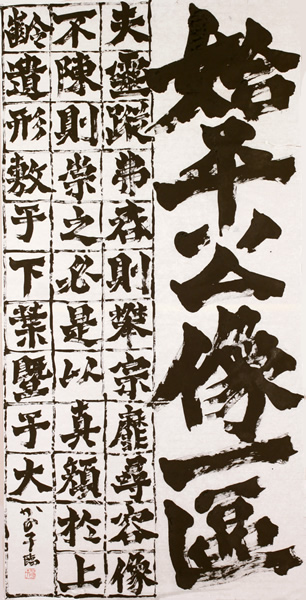 始平公像一區
夫靈蹤弗啓則攀宗靡尋容像
不陳則崇之必是以真顏於上
齡遺形敷于下葉暨于大